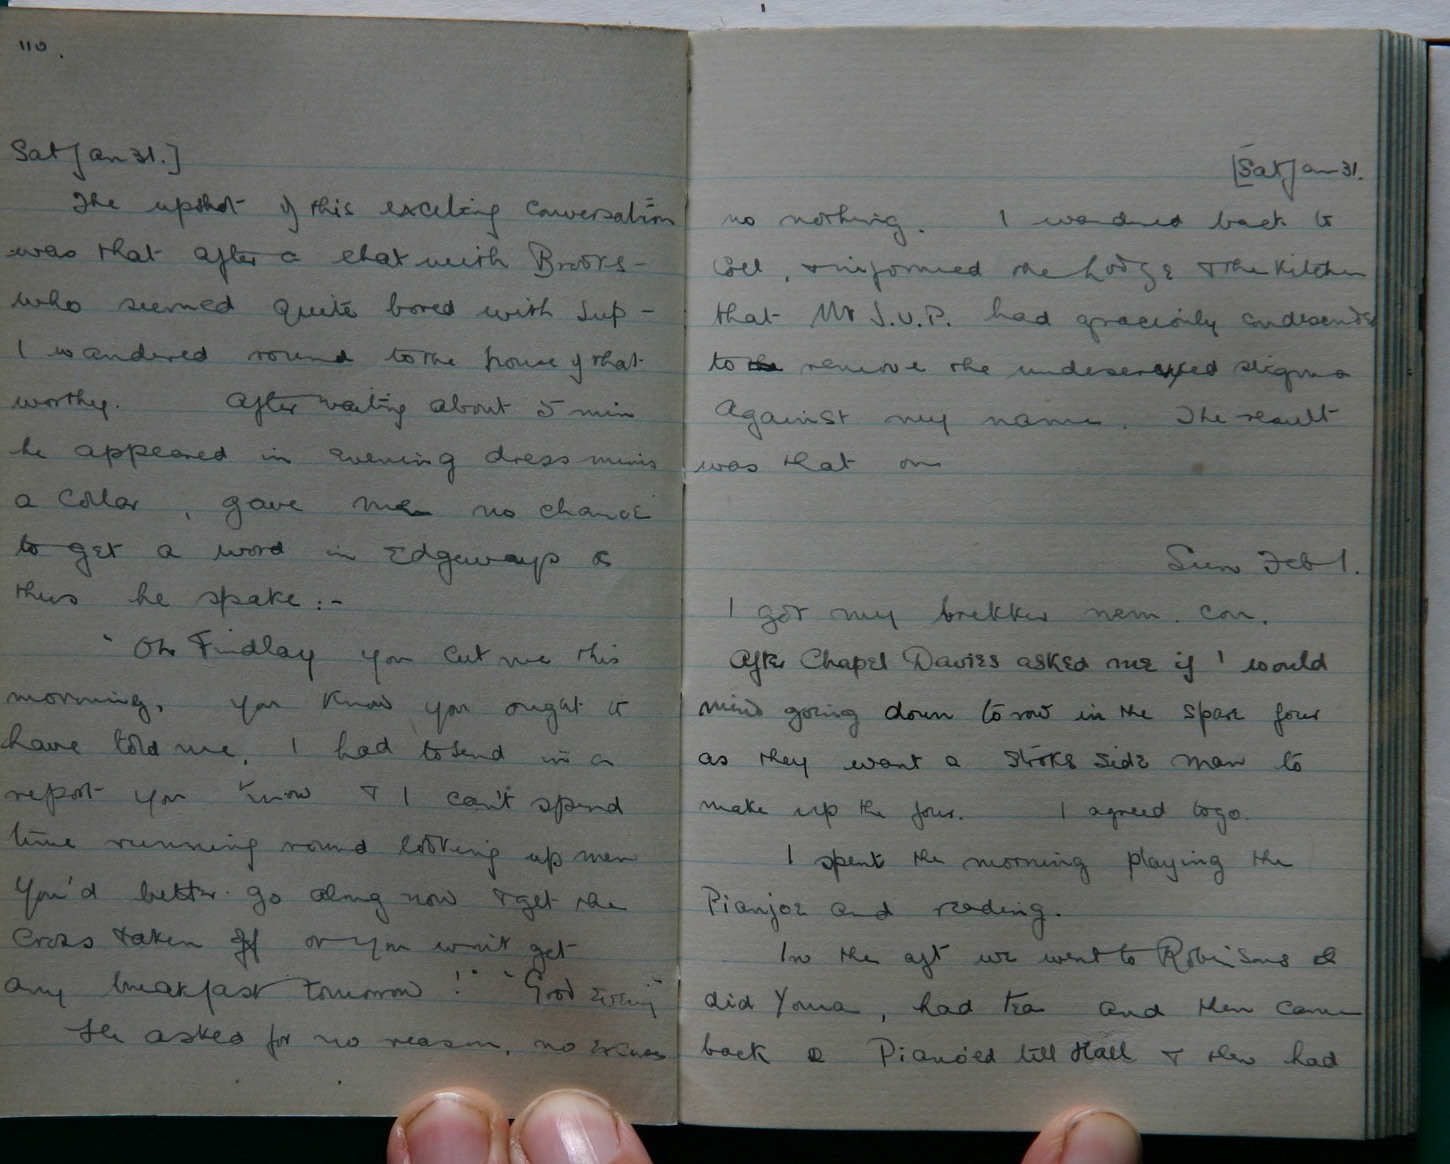 110.
Sat Jan 31.]
The upshot of this exciting conversation
was that after a chat with Brooks -
who seemed quite bored with Sup -
I wandered round to the house of that
worthy. After waiting about 5 min
he appeared in evening dress minus
a collar, gave me no chance
to get a word in Edgeways &
thus he spake :-
"Oh Findlay you cut me this
morning, you know you ought to
have told me, I had to send in a
report you know & I can't spend
time running round looking up men
You'd better go along now & get the
cross taken off or you won't get
any breakfast tomorrow!" "Good Evening"
He asked for no reason, no excuses
[Sat Jan 31.
no nothing. I wandered back to
Coll, & informed the Lodge & the Kitchen
that Mr J.U.P. had graciously
to the remove the undeserved stigma
against my name. The result
was that on
Sun Feb 1.
I got my brekker nem. con.
After Chapel Davies asked me if I would
mind going down to row in the spare four
as they want a stroke side man to
make up the four. I agreed to go.
I spent the morning playing the
Pianjoe and reading.
In the aft we went to Robinsons &
did , had tea and then came
back & Piano'ed till Hall & then had